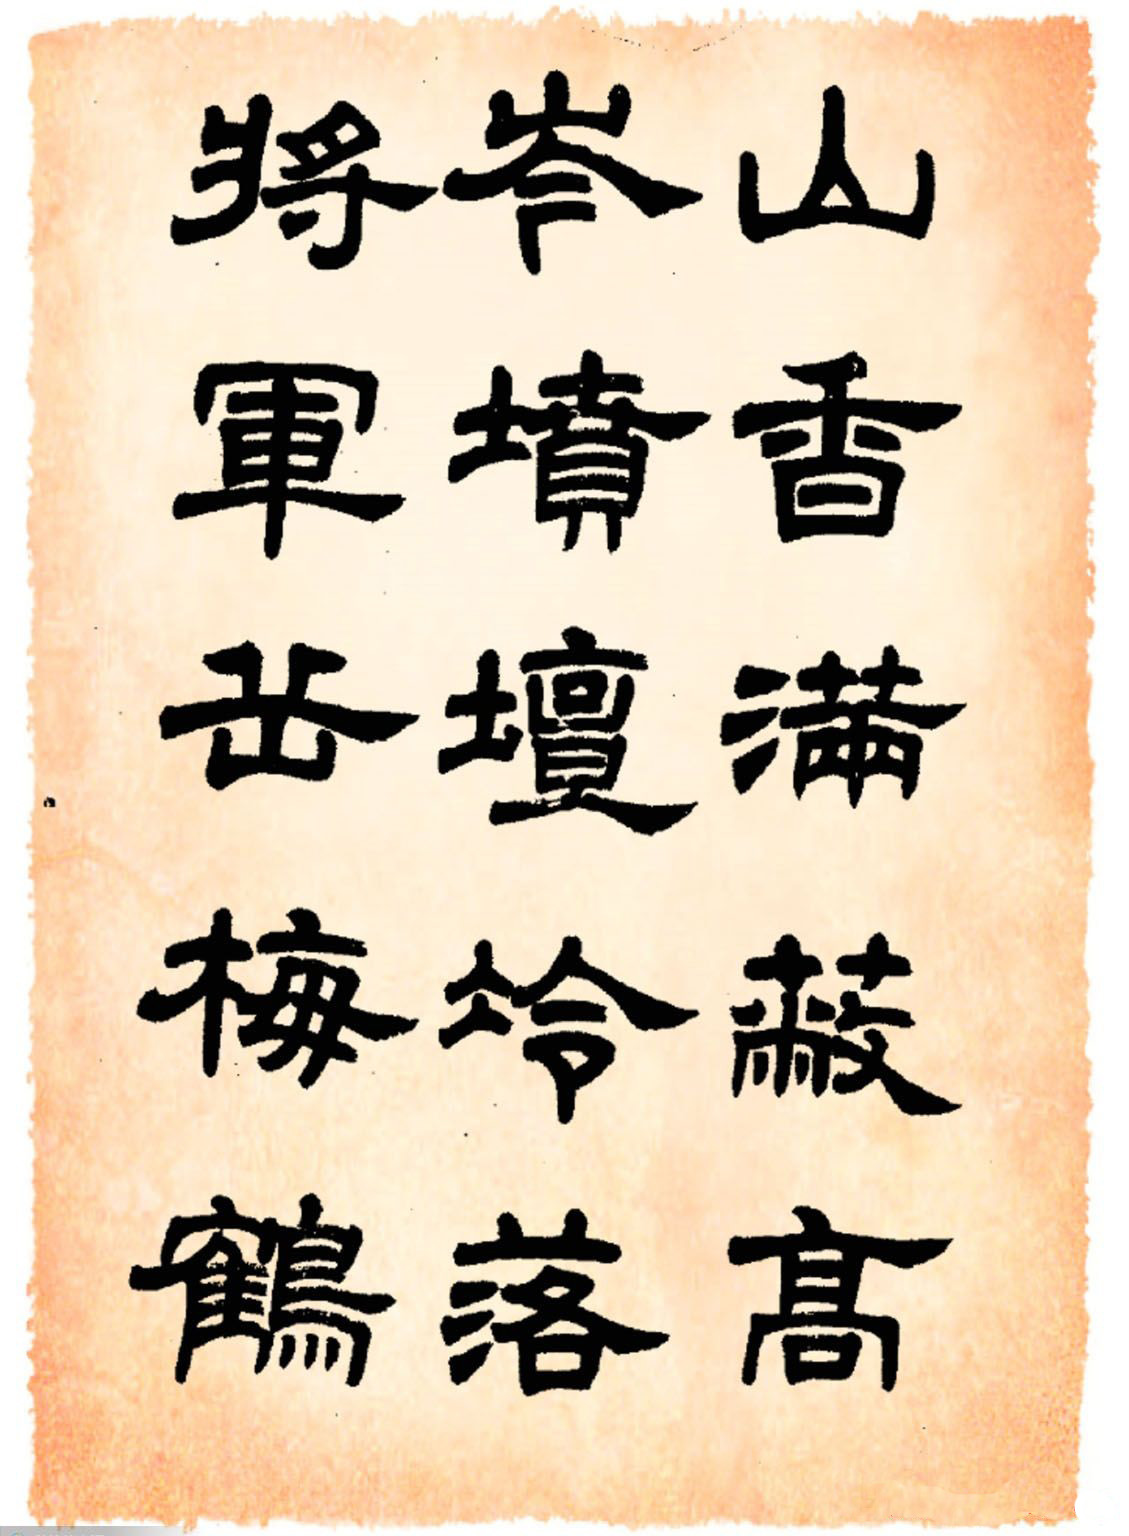 山香滿蔽高
岑墳壇竛落
將軍岳梅鶴